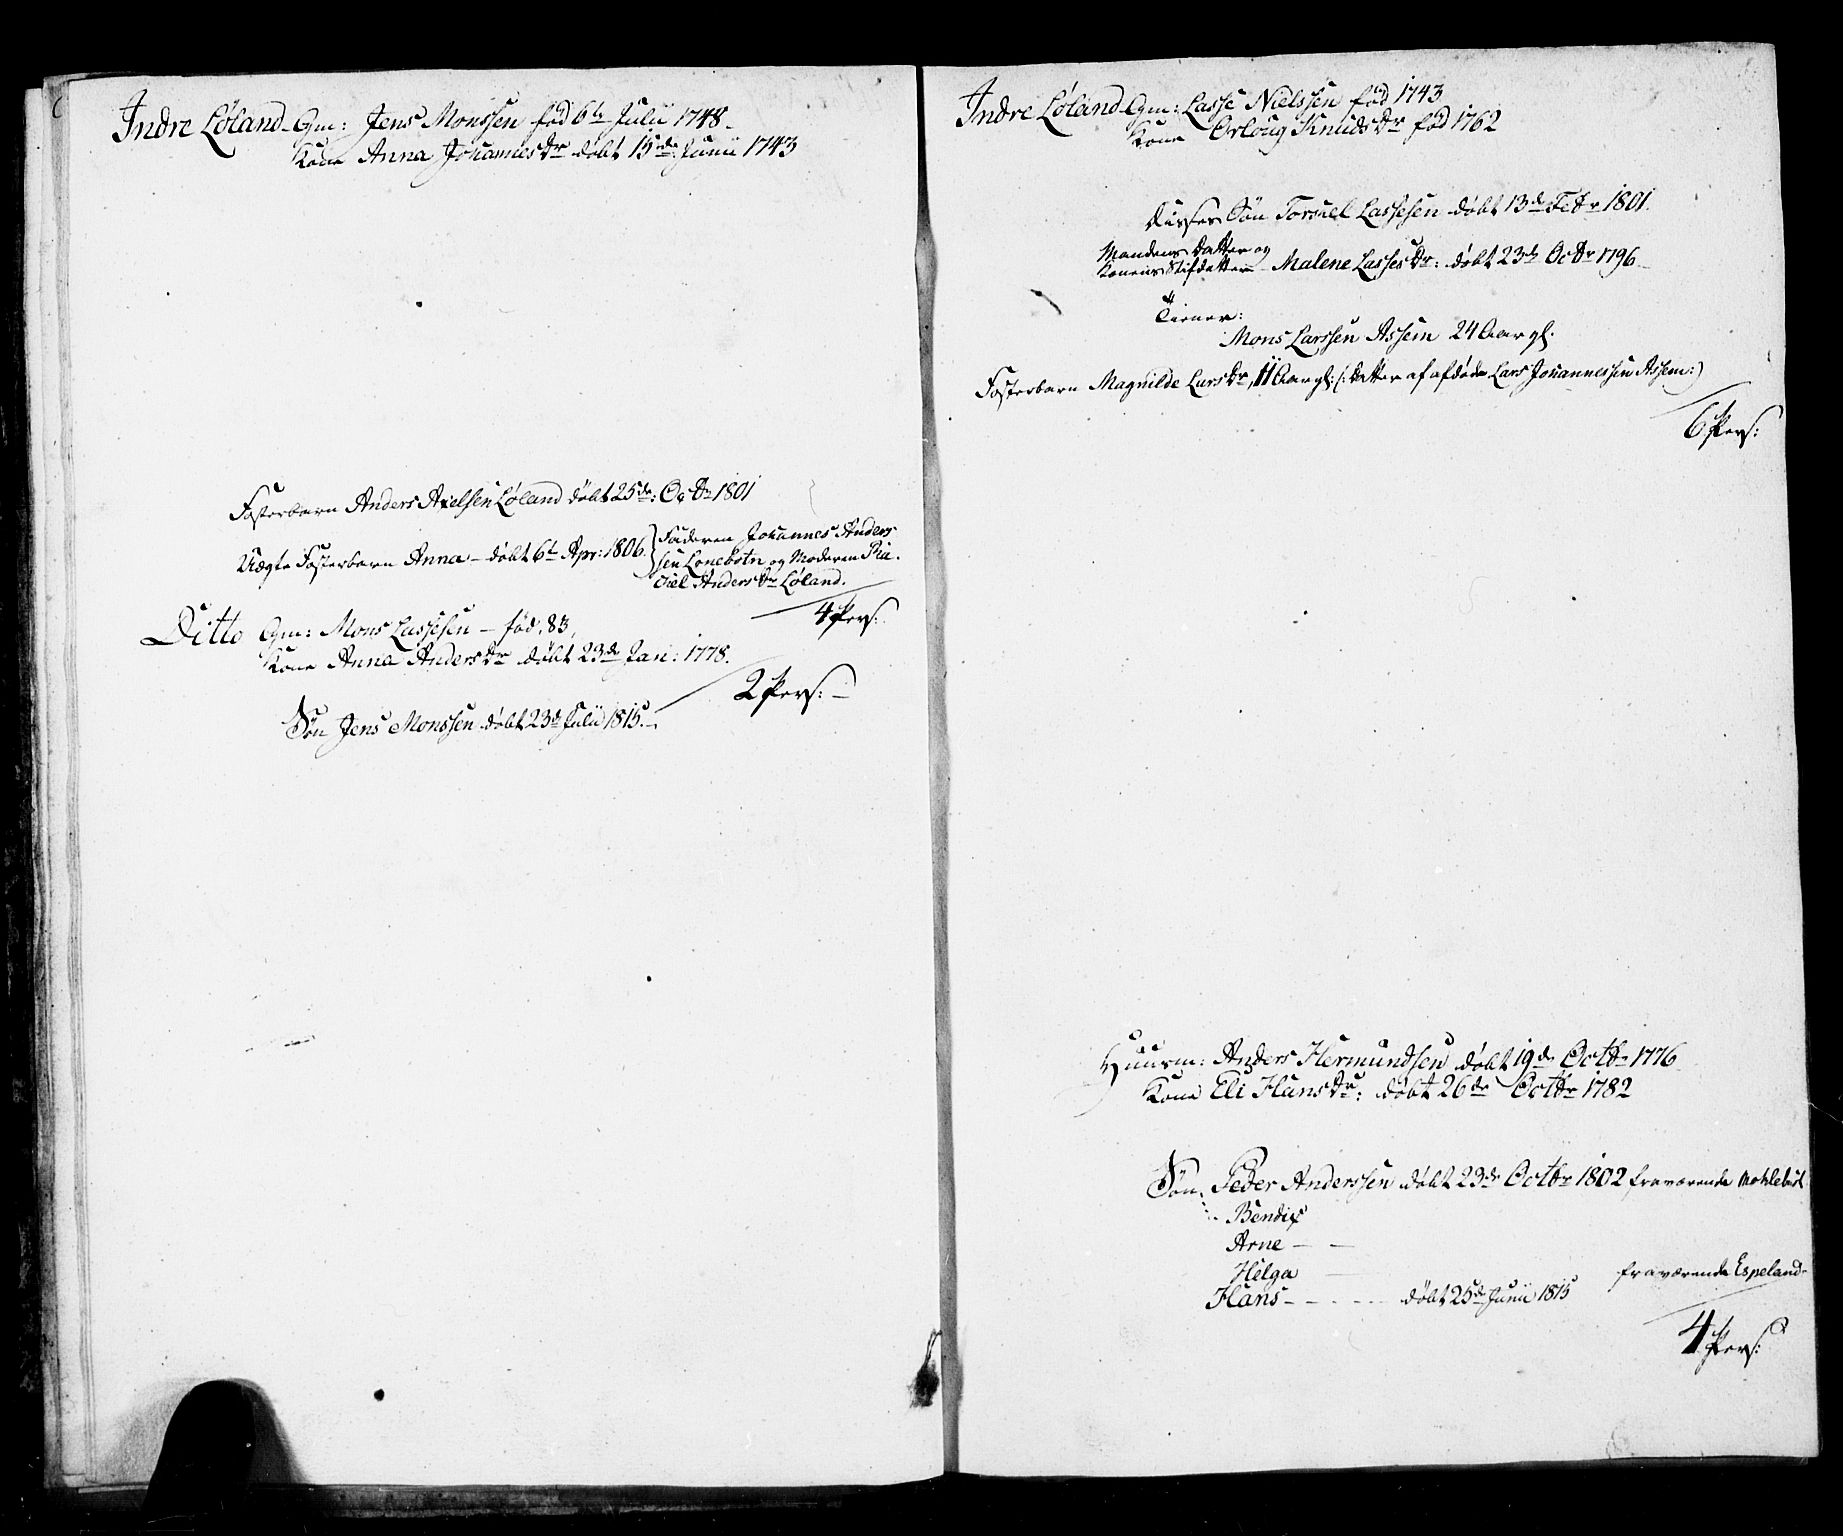 Indre Løland - Gm: Jens Monssen fød 6te Julii 1748 -
Kone Anna Johannesdr døbt 15de Junii 1743
Fosterbarn Anders Axelsen Løland døbt 25de: Octbr 1801
Uægte Fosterbarn Anna - døbt 6te Apr: 1806. } Faderen Johannes Anders
sen Lonebotn og Moderen Ra-
chel Andersdr Løland.
4 Pers:
Ditto Gm: Mons Lassesen - fød, 83,
Kone Anna Andersdr døbt 23de Jan: 1778.
2 Pers: -
Søn Jens Monssen døbt 23de Julii 1815. -
Indre Løland - Gm: Lasse Nielssen fød 1743
Kone Orloug Knudsdr fød 1762
Disses Søn Torkiel Lassesen døbt 13de Febr 1801.
Mandens Datter og
Konens Stifdatter - Malene Lassesdr: døbt 23de Octbr 1796 -
Tiener:
Mons Larssen Assem 24 Aar gl.
Fosterbarn Magnilde Larsdr, 11 Aar gl: (: Datter af afdøde Lars Johannessen Assem:)
6 Pers:
Huusm: Anders Hermundsen døbt 19de Octbr 1776
Kone Eli Hansdr: døbt 26de Octbr 1782
Søn: Peder Anderssen døbt 23de Octbr 1802 fraværende
Bendix
Arne - -
Helga - fraværende Espeland -
Hans - - - - - døbt 25de Junii 1815
4 Pers: